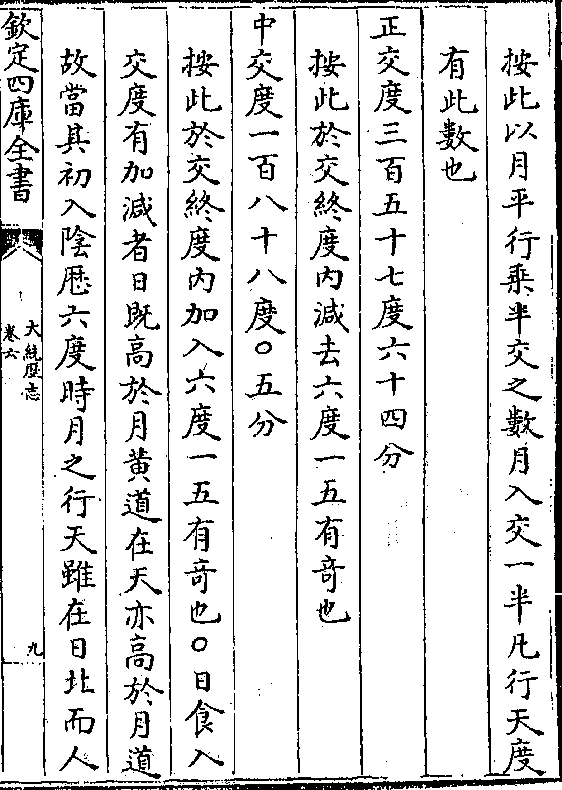 按此以月平行乗半交之數月入交一半凡行天度
有此數也
正交度三百五十七度六十四分
按此於交終度内減去六度一五有竒也
中交度一百八十八度〇五分
按此於交終度内加入六度一五有竒也〇日食入
交度有加減者日既高於月黄道在天亦高於月道
故當其初入陰厯六度時月之行天雖在日北而人
欽定四庫全書
大統厯志
卷六
九